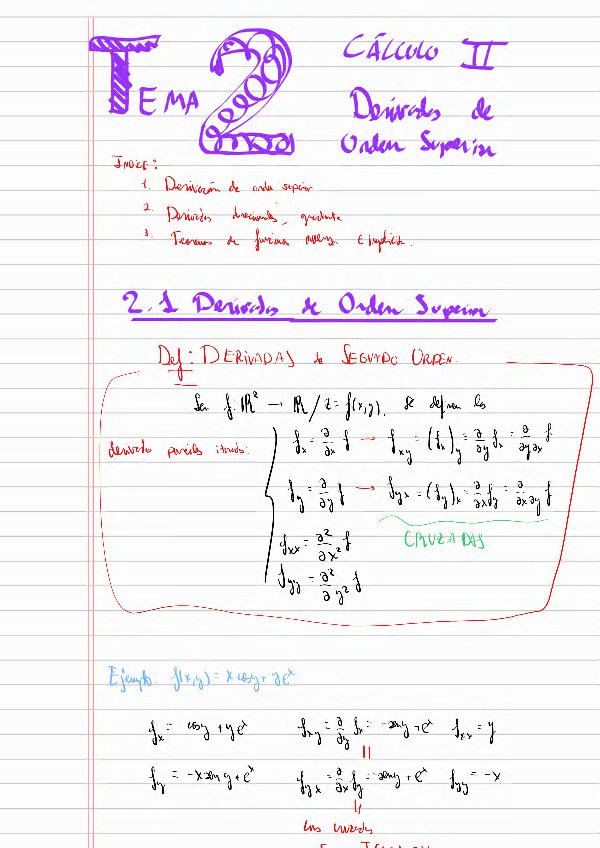 TEMA 2
CÁLCULO II
Derivadas de
Orden Superior
ÍNDICE:
1. Derivación de orden superior
2. Derivadas direccionales, gradiente
3. Teoremas de función inversa e implícita.
2.1 Derivadas de Orden Superior
Def: DERIVADAS de SEGUNDO ORDEN.
Sea f: ℝ² → ℝ / z = f(x,y). Se definen las
derivadas parciales iteradas:
f_x = ∂/∂x f → f_xy = (f_x)_y = ∂/∂y f_x = ∂/∂y∂x f
f_y = ∂/∂y f → f_yx = (f_y)_x = ∂/∂x f_y = ∂/∂x∂y f
CRUZADAS
f_xx = ∂²/∂x² f
f_yy = ∂²/∂y² f
Ejemplo: f(x,y) = x cosy + y eˣ
f_x = cosy + y eˣ f_xy = ∂/∂y f_x = -seny + eˣ f_xx = y
f_y = -x sen y + eˣ f_yx = ∂/∂x f_y = -seny + eˣ f_yy = -x
las cruzadas